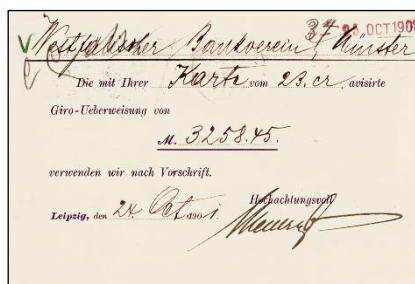 37 25. OCT 190
Westfälischer Bankverein, Münster
Die mit Ihrer Karte vom 23. cr. avisirte
Giro-Ueberweisung von
M. 3258.45.
verwenden wir nach Vorschrift.
Hochachtungsvoll
Leipzig, den 24. Oct. 1901.